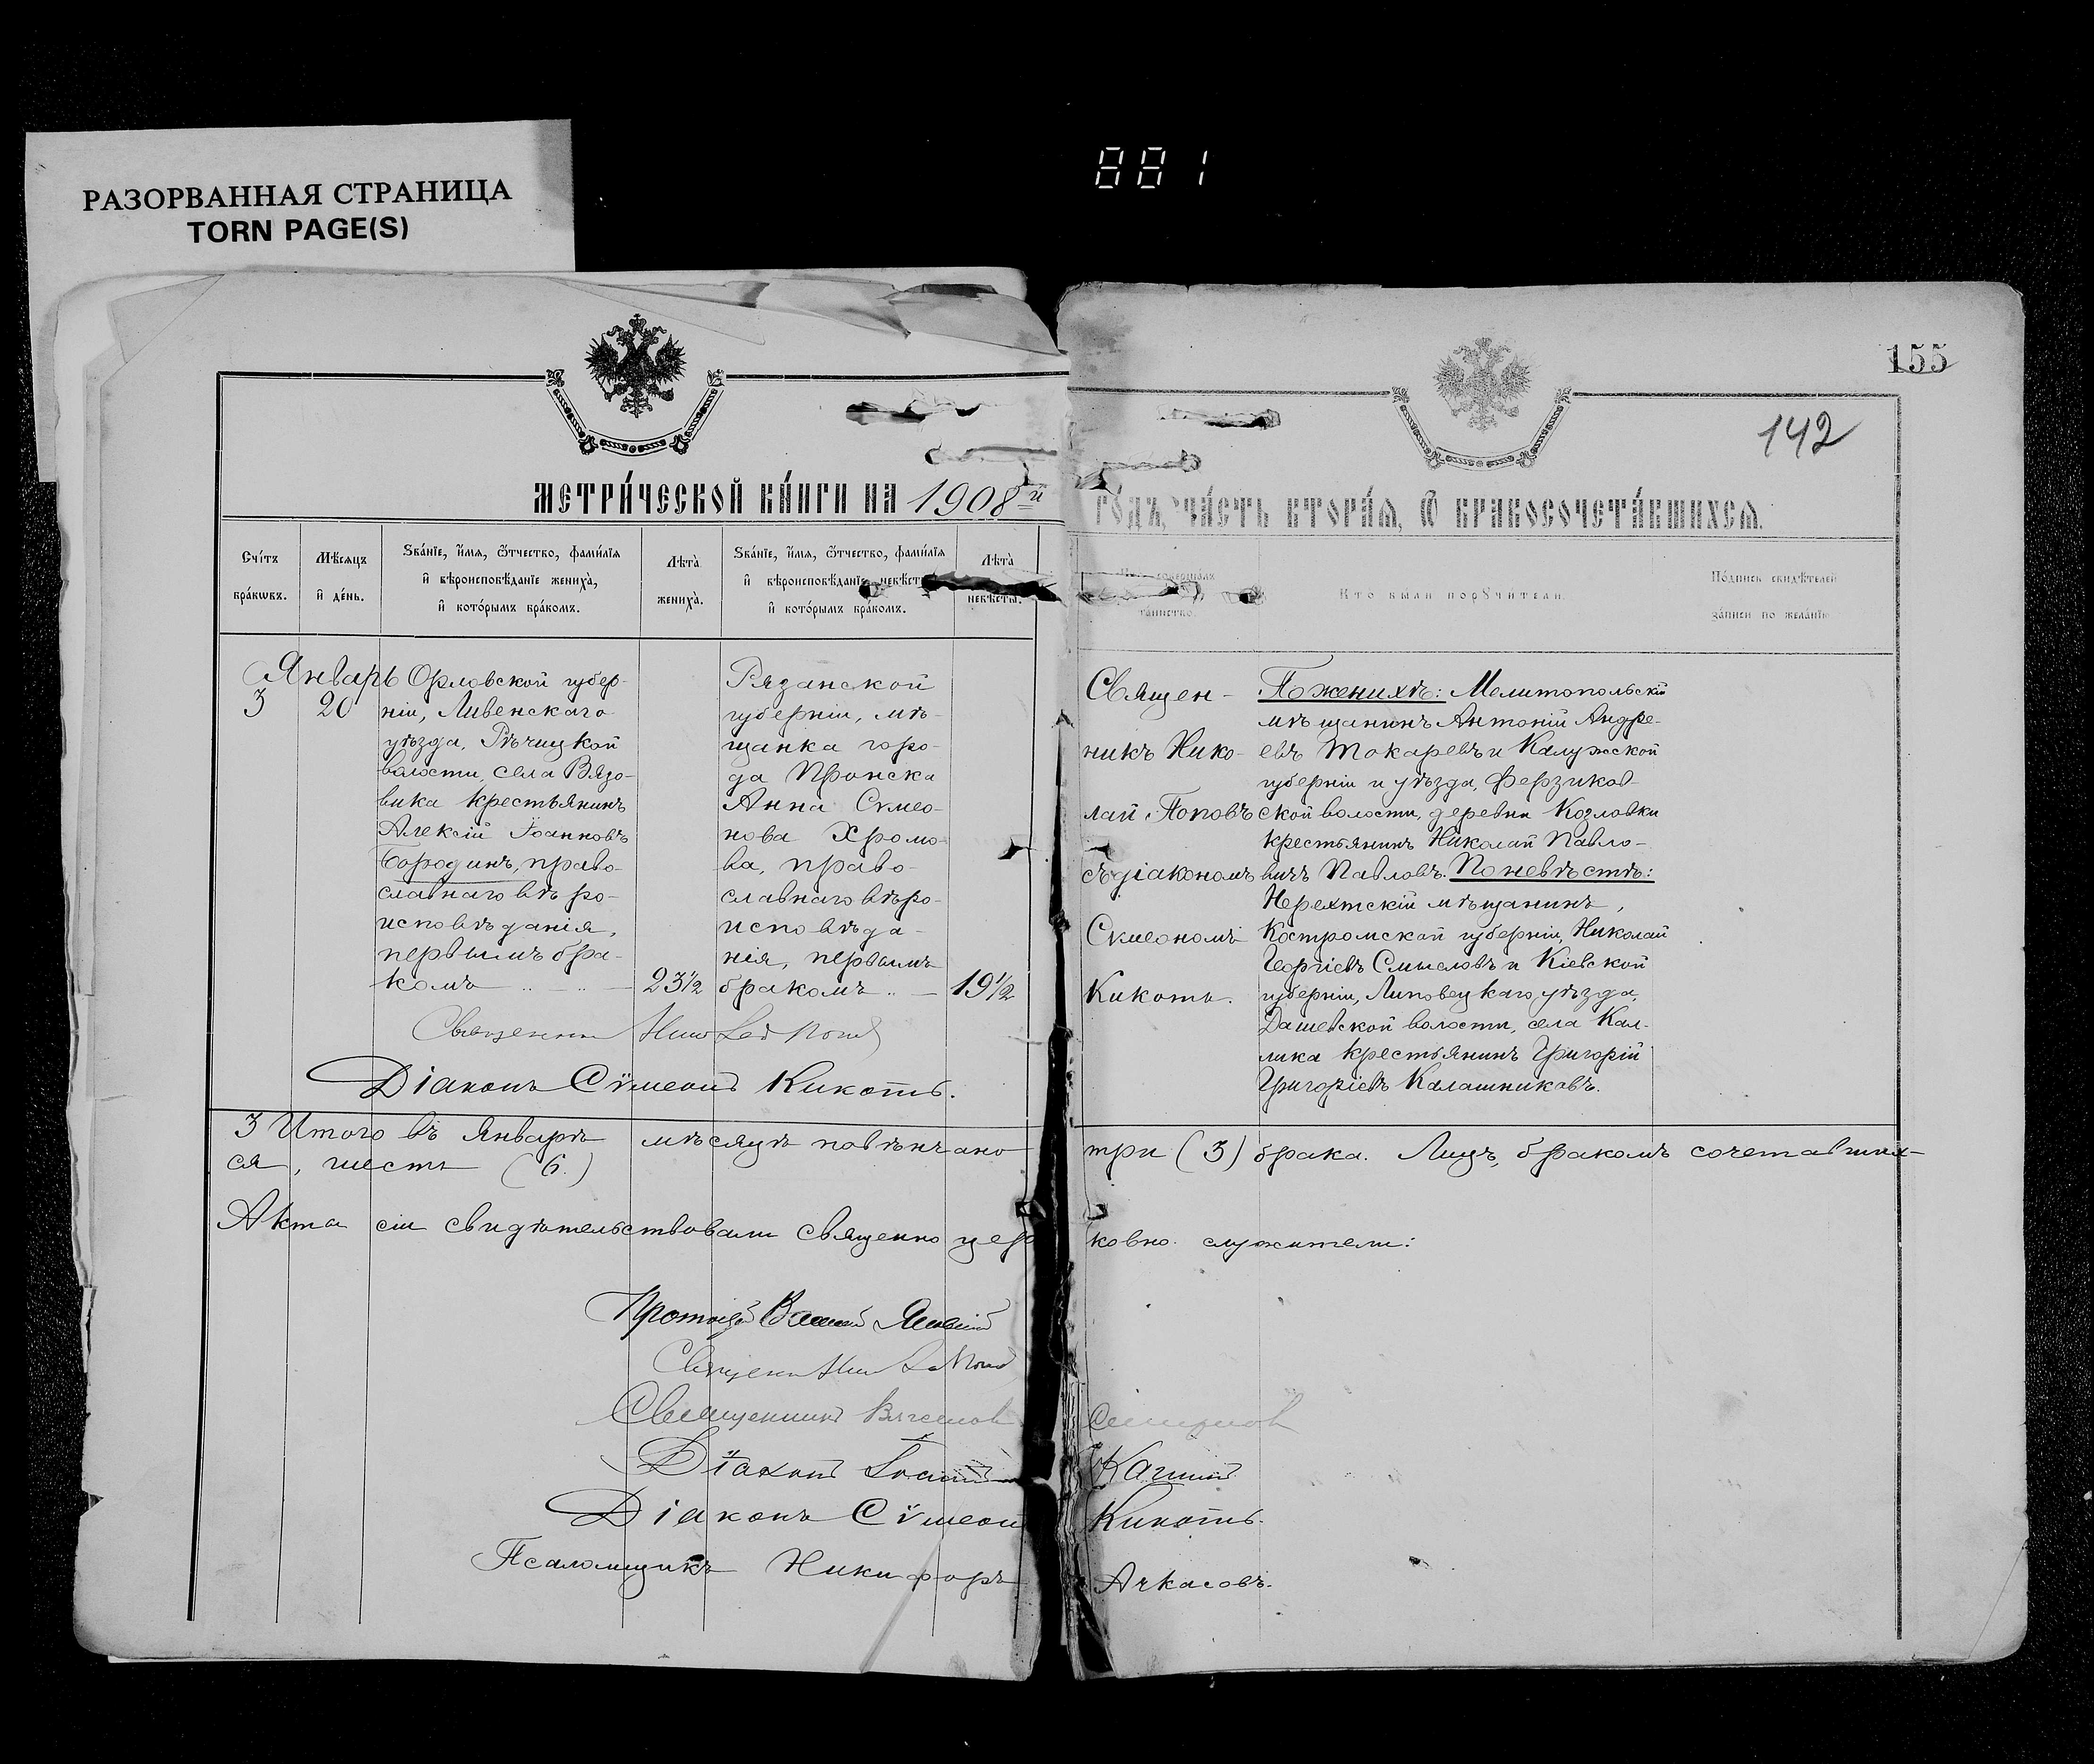 881
РАЗОРВАННАЯ СТРАНИЦА
TORN PAGE(S)
155
142
МЕТРИ́ЧЕСКОЙ КНИ́ГИ НА 1908й
ГО́ДЪ, ЧА́СТЬ ВТОРА́Я, Ѿ БРАКОСОЧЕТА́ВШИХСЯ.
Сче́тъ
бра́кѡвъ.
Мѣ́сяцъ
и҆ де́нь.
Зва́нїе, и҆́мя, ѻ҆́тчество, фами́лїя
и҆ вѣроисповѣ́данїе жениха̀,
и҆ кото́рымъ бра́комъ.
Лѣ́та
жениха̀.
Зва́нїе, и҆́мя, ѻ҆́тчество, фами́лїя
и҆ вѣроисповѣ́данїе невѣ́сты
и҆ кото́рымъ бра́комъ.
Лѣ́та
невѣ́сты.
совершалъ
таинство.
Кто были порꙋчи́тели.
По́дписи свидѣ́телей
за́писи по жела́нїю
Январь
3
20
Орловской губер-
нiи, Ливенскаго
уѣзда, Рѣчицкой
волости, села Вязо-
вика крестьянинъ
Алексiй Iоанновъ
Бородинъ, право-
славнаго вѣро-
исповѣданiя,
первымъ бра-
комъ
23½
Рязанской
губернiи, мѣ-
щанка горо-
да Пронска
Анна Сѵмео-
нова Хромо-
ва, право-
славнаго вѣро-
исповѣда-
нiя, первымъ
бракомъ
19½
Священ-
никъ Нико-
лай Поповъ
съ дiакономъ
Сѵмеономъ
Кикоть.
По женихѣ: Мелитопольскiй
мѣщанинъ Антонiй Андре-
евъ Токаревъ и Калужской
губернiи и уѣзда, Ферзиков-
ской волости, деревни Козловки
крестьянинъ Николай Павло-
вичъ Павловъ. По невѣстѣ:
Нерехтскiй мѣщанинъ,
Костромской губернiи, Николай
Георгiевъ Смысловъ и Кiевской
губернiи, Липовецкаго уѣзда,
Дашевской волости, села Каль-
ника крестьянинъ Григорiй
Григорiевъ Калашниковъ.
Священникъ Николай Поповъ
Дiаконъ Сѵмеонъ Кикоть.
3 Итого въ Январѣ мѣсяцѣ повѣнчано три (3) брака. Лицъ, бракомъ сочетавших-
ся, шесть (6.)
Акты сiи свидѣтельствовали священно церковно служители:
Протоiерей
Священникъ Николай Поповъ
Священникъ
Дiаконъ Iоаннъ
Дiаконъ Сѵмеонъ Кикоть.
Псаломщикъ Никифоръ Ачкасовъ.